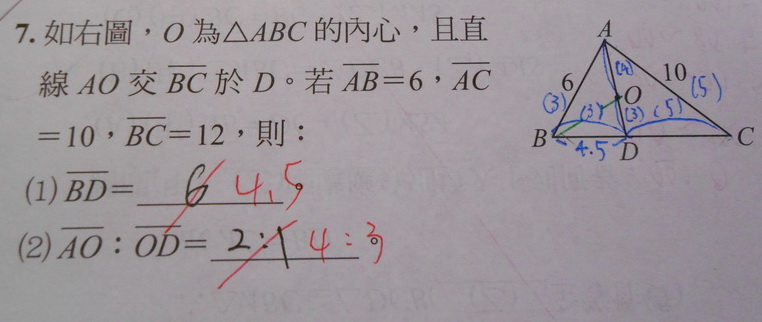 7. 如右圖，O 為△ABC 的內心，且直
線 AO 交 BC 於 D。若 AB=6，AC
=10，BC=12，則：
(1) BD= 6 4.5。
(2) AO：OD= 2:1 4:3。
A
6
10
(4)
(5)
(3)
O
(3)
(3)
(5)
B
4.5
D
C